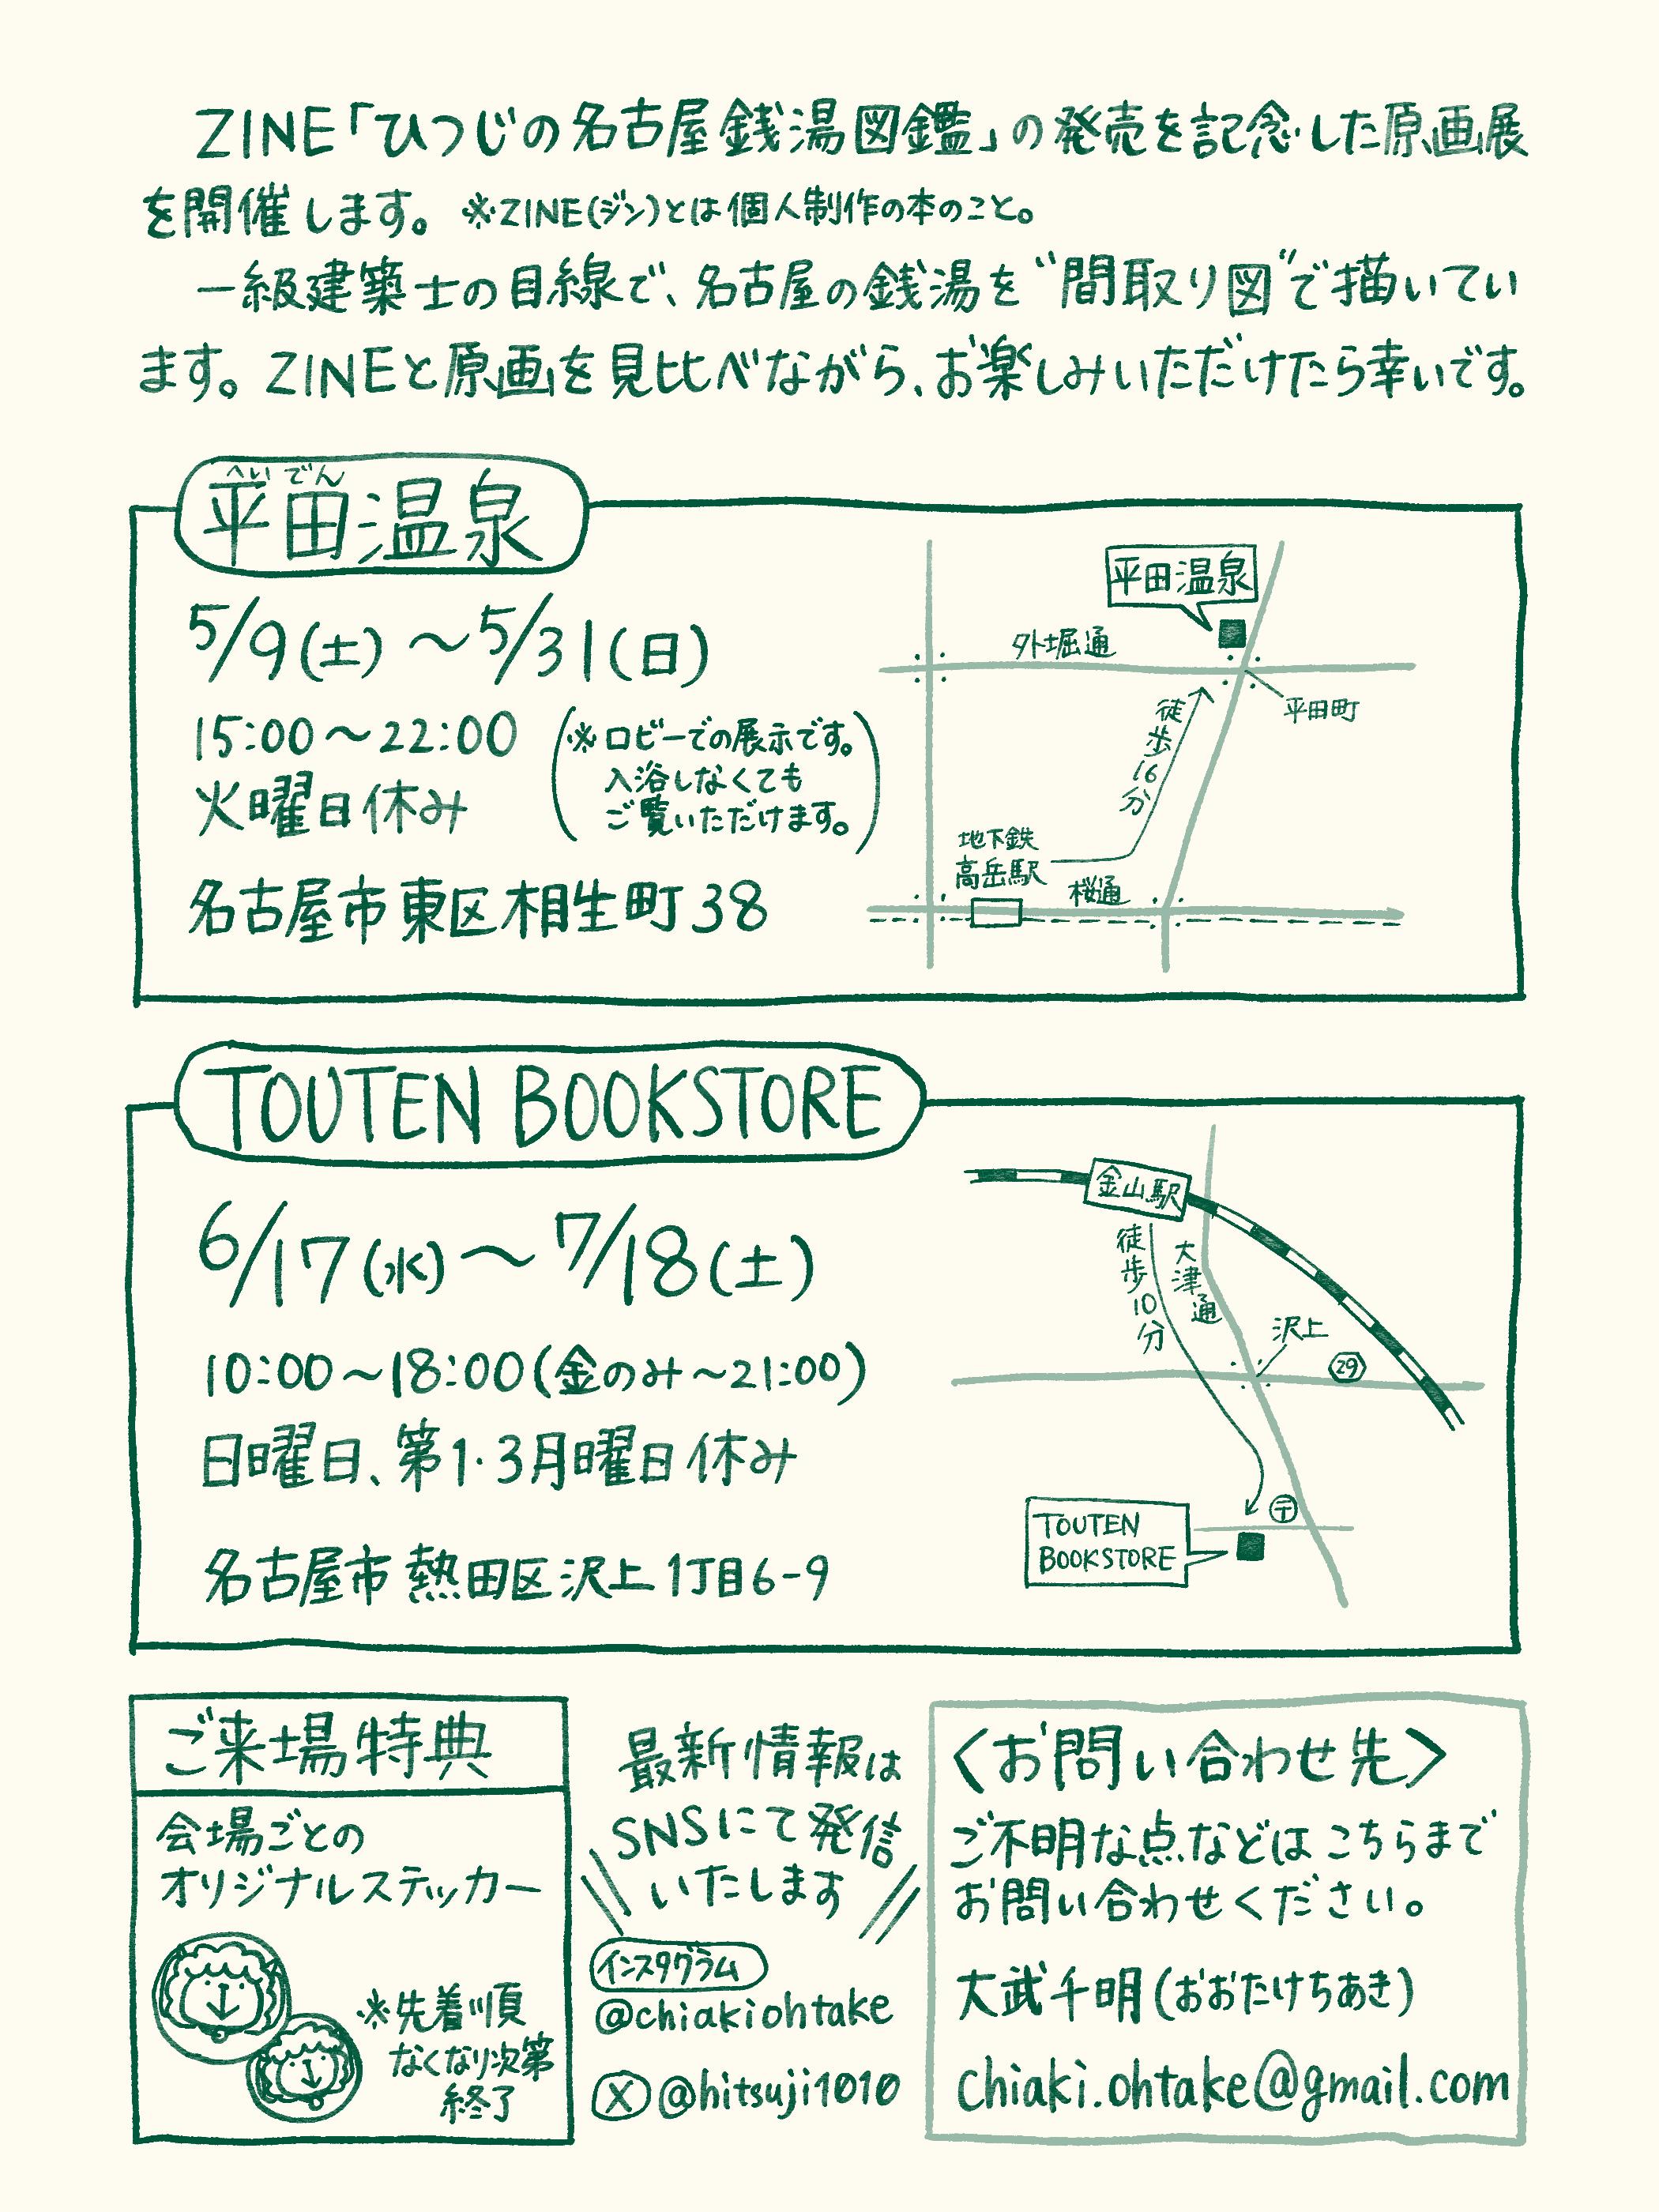 ZINE「ひつじの名古屋銭湯図鑑」の発売を記念した原画展
を開催します。※ZINE(ジン)とは個人制作の本のこと。
一級建築士の目線で、名古屋の銭湯を“間取り図”で描いてい
ます。ZINEと原画を見比べながら、お楽しみいただけたら幸いです。
へいでん
平田温泉
5/9(土)～5/31(日)
15:00～22:00
火曜日休み
(※ロビーでの展示です。
入浴しなくても
ご覧いただけます。)
名古屋市東区相生町38
平田温泉
外堀通
平田町
徒歩16分
地下鉄
高岳駅
桜通
TOUTEN BOOKSTORE
6/17(水)～7/18(土)
10:00～18:00(金のみ～21:00)
日曜日、第1・3月曜日休み
名古屋市熱田区沢上1丁目6-9
金山駅
徒歩10分
大津通
沢上
29
〒
TOUTEN
BOOKSTORE
ご来場特典
会場ごとの
オリジナルステッカー
※先着順
なくなり次第
終了
最新情報は
SNSにて発信
いたします
インスタグラム
@chiakiohtake
X @hitsuji1010
〈お問い合わせ先〉
ご不明な点などはこちらまで
お問い合わせください。
大武千明(おおたけちあき)
chiaki.ohtake@gmail.com